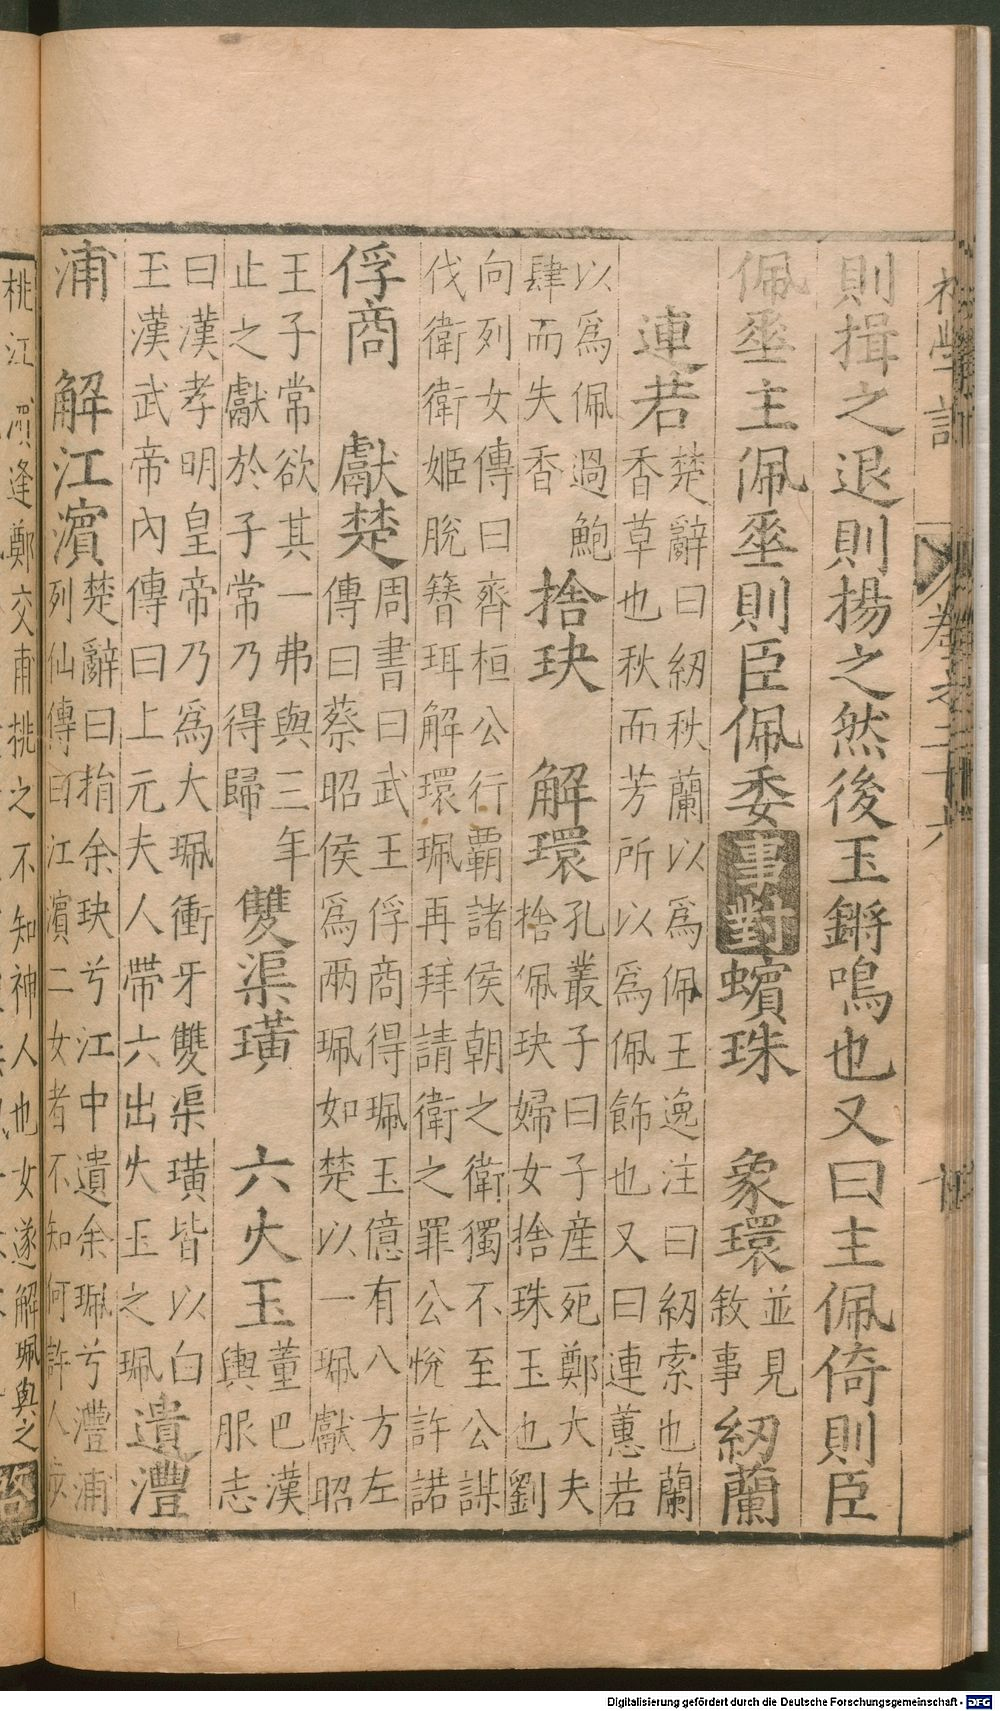 初學記 卷之二十六
則揖之退則揚之然後玉鏘鳴也又曰主佩倚則臣
佩垂主佩垂則臣佩委 事對 蠙珠 象環 並見
敘事 紉蘭
連若 楚辭曰紉秋蘭以爲佩王逸注曰紉索也蘭
香草也秋而芳所以爲佩飾也又曰連蕙若
以爲佩過鮑
肆而失香 捨玦 解環 孔叢子曰子産死鄭大夫
捨佩玦婦女捨珠玉也劉
向列女傳曰齊桓公行霸諸侯朝之衛獨不至公謀
伐衛衛姬脫簪珥解環珮再拜請衛之罪公悅許諾
俘商 獻楚 周書曰武王俘商得珮玉億有八方左
傳曰蔡昭侯爲兩珮如楚以一珮獻昭
王子常欲其一弗與三年
止之獻於子常乃得歸 雙渠璜 六火玉 董巴漢
輿服志
曰漢孝明皇帝乃爲大珮衝牙雙渠璜皆以白
玉漢武帝內傳曰上元夫人帶六出火玉之珮 遺澧
浦 解江濱 楚辭曰捐余玦兮江中遺余珮兮澧浦
列仙傳曰江濱二女者不知何許人
桃江 逢鄭交甫挑之不知神人也女遂解珮與之
Digitalisierung gefördert durch die Deutsche Forschungsgemeinschaft - DFG